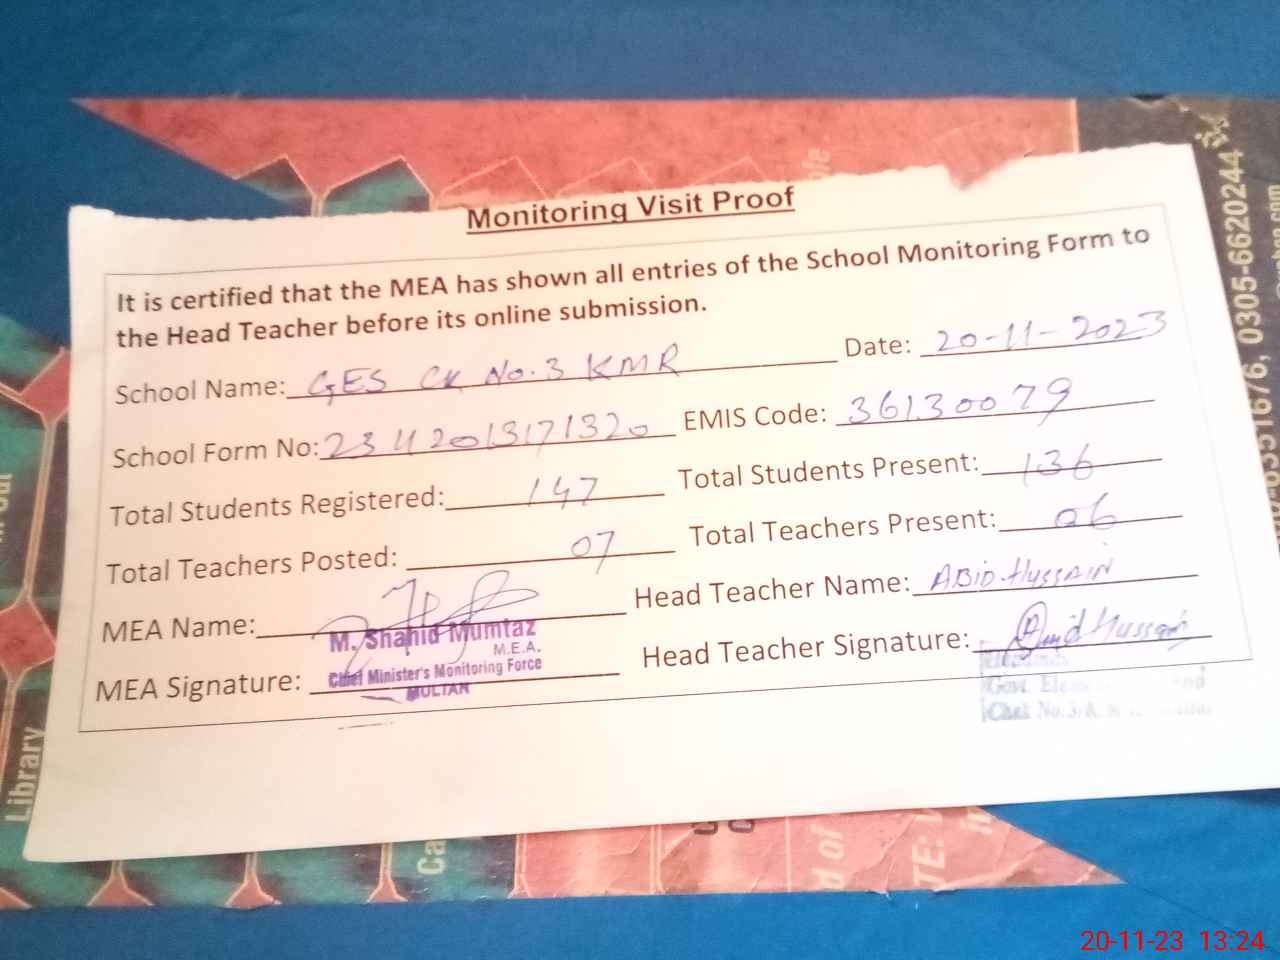 Monitoring Visit Proof
It is certified that the MEA has shown all entries of the School Monitoring Form to
the Head Teacher before its online submission.
School Name: GES CK No.3 KMR Date: 20-11-2023
School Form No: EMIS Code: 36130079
Total Students Registered: 147 Total Students Present: 136
Total Teachers Posted: 07 Total Teachers Present: 06
MEA Name: Head Teacher Name: ABID Hussain
M. Shahid Mumtaz
M.E.A.
MEA Signature: Chief Minister's Monitoring Force Head Teacher Signature:
MULTAN
Govt.
Chak No.3/
Library
0305-6620244
20-11-23 13:24